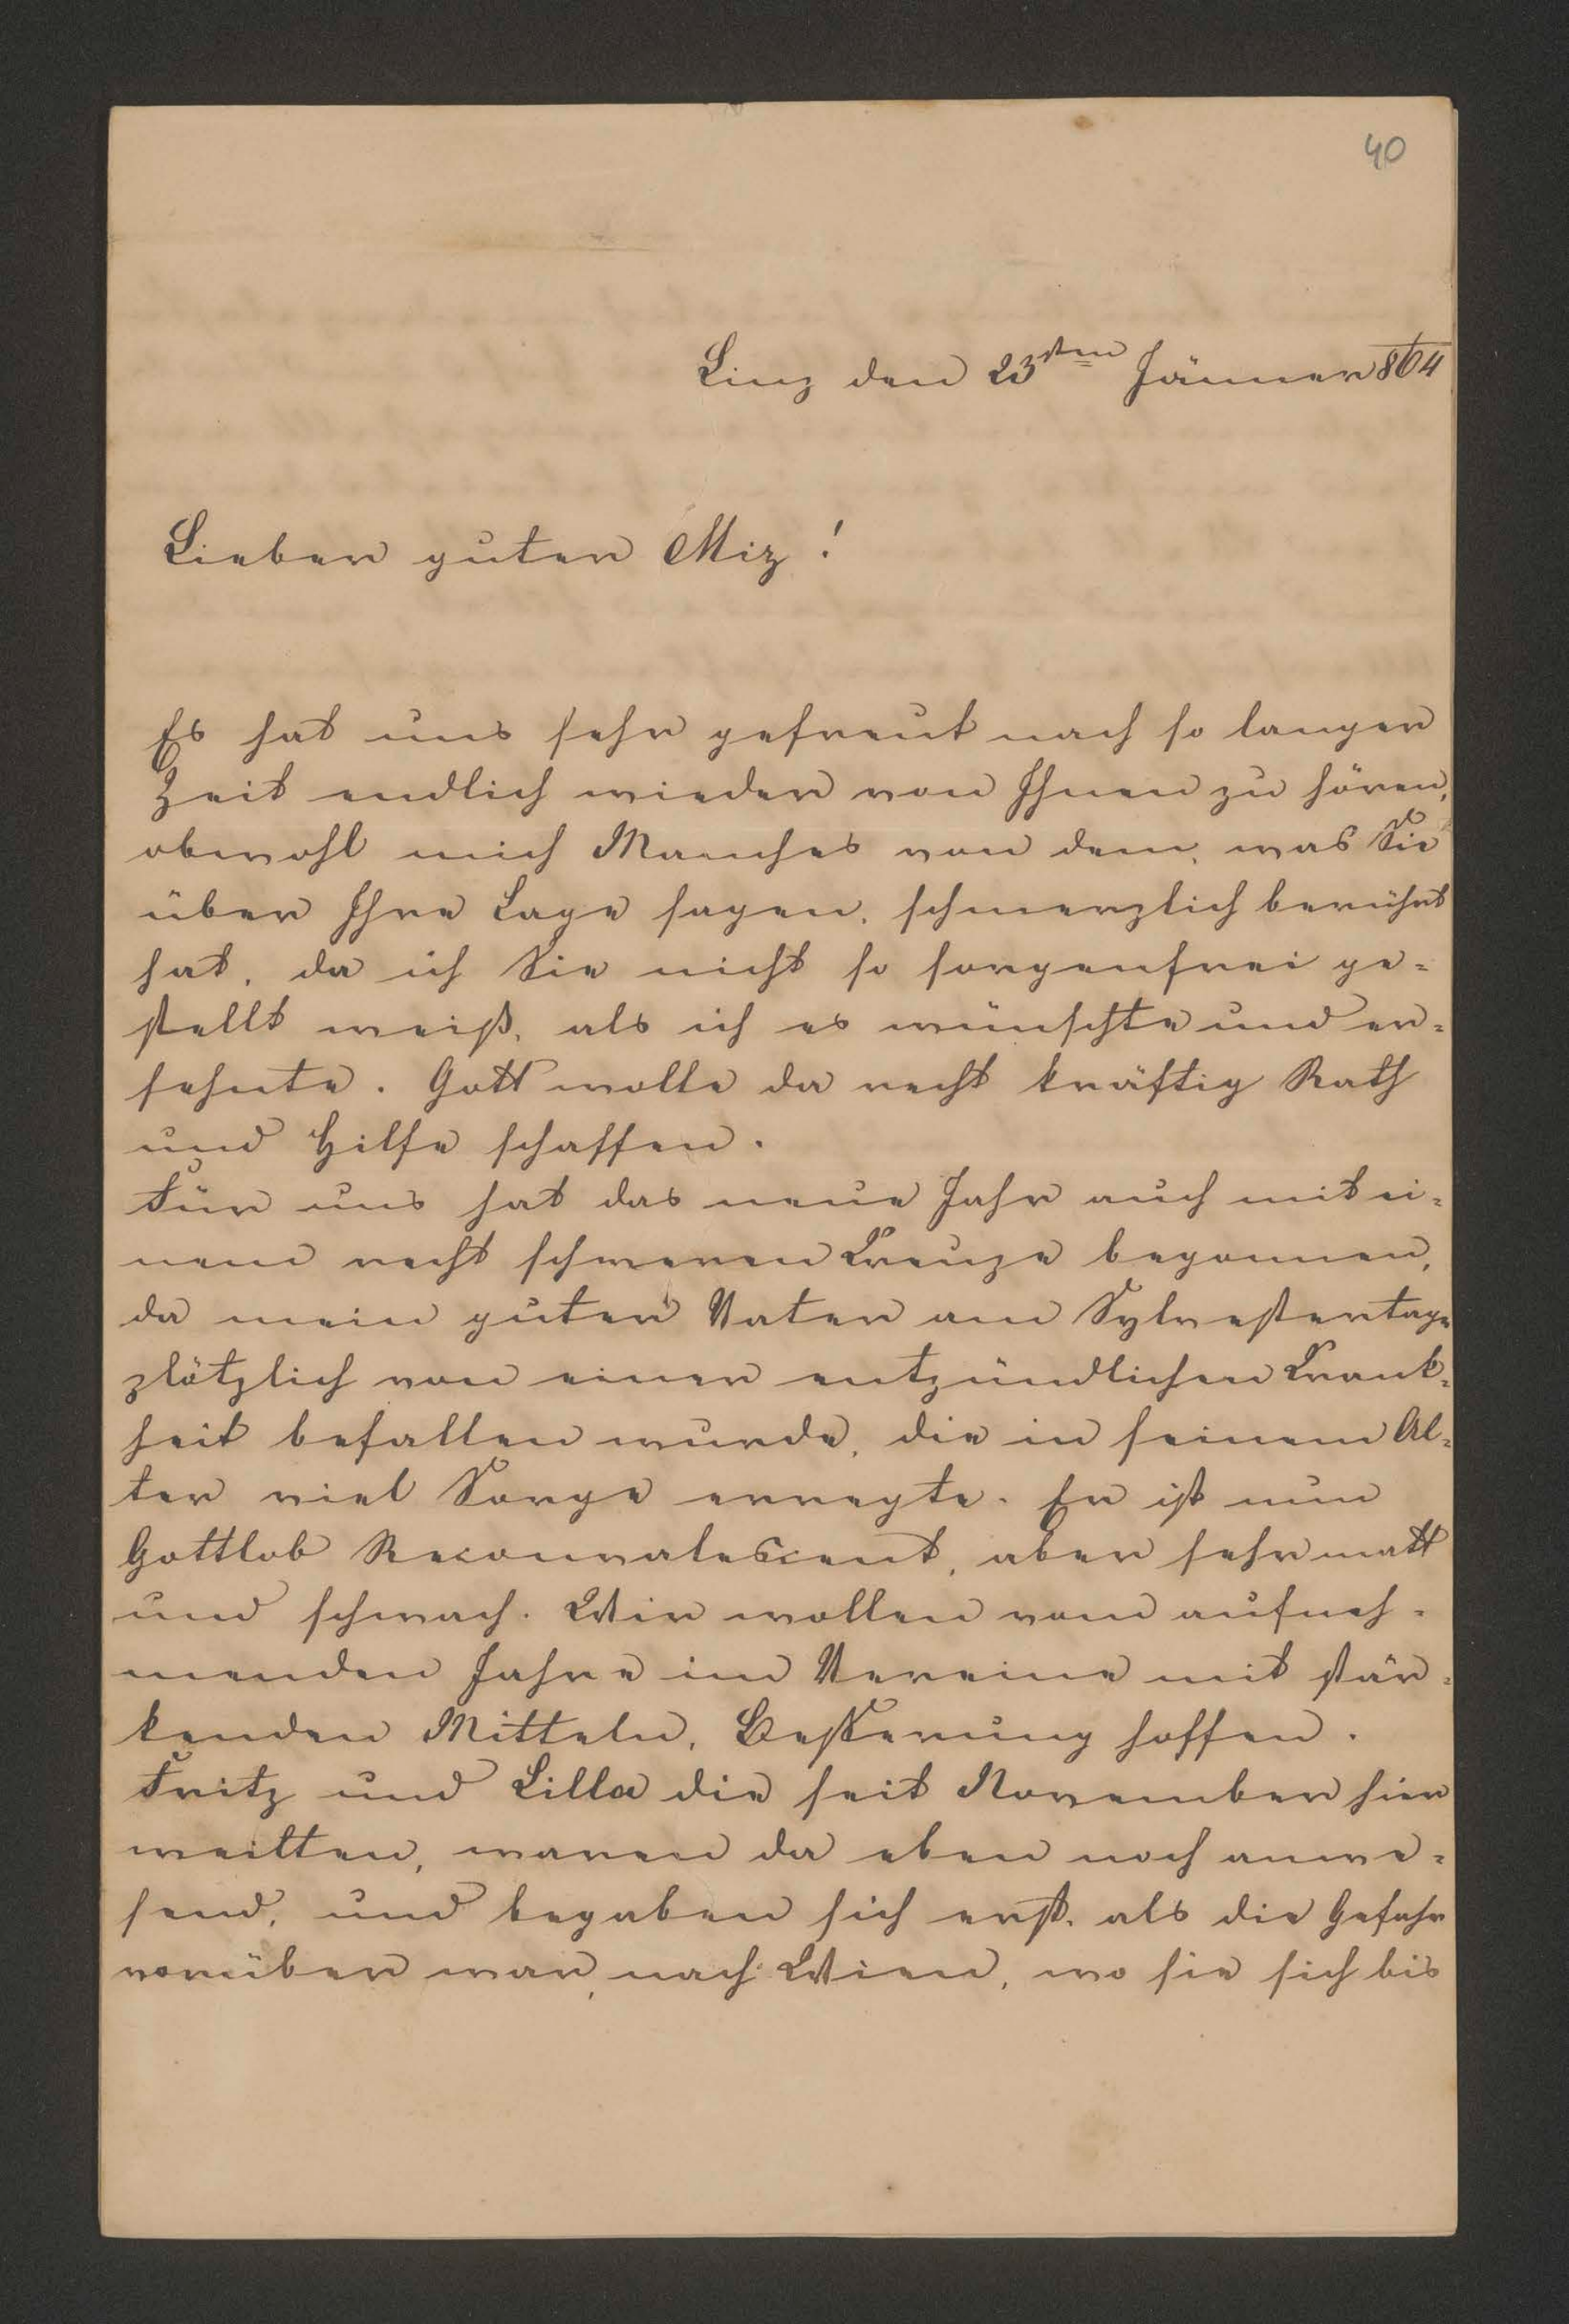 40
Linz den 23sten Jänner 864
Lieber guter Miz!
Es hat uns sehr gefreut nach so langer
Zeit endlich wieder von Ihnen zu hören,
obwohl mich Manches von dem, was Sie
über Ihre Lage sagen, schmerzlich berührt
hat, da ich Sie nicht so sorgenfrei ge-
stellt weiß, als ich es wünschte und er-
sehnte. Gott wolle da recht kräftig Rath
und Hilfe schaffen.
Für uns hat das neue Jahr auch mit ei-
nem recht schweren Kreuze begonnen,
da mein guter Vater am Sylvestertage
plötzlich von einer entzündlichen Krank-
heit befallen wurde, die in seinem Al-
ter viel Sorge erregte. Er ist nun
Gottlob Reconvalescent, aber sehr matt
und schwach. Wir wollen vom aufneh-
menden Jahre im Vereine mit stär-
kenden Mitteln, Besserung hoffen.
Fritz und Lilla die seit November hier
weilten, waren da eben noch anwe-
send, und begaben sich erst, als die Gefahr
vorüber war, nach Wien, wo sie sich bis